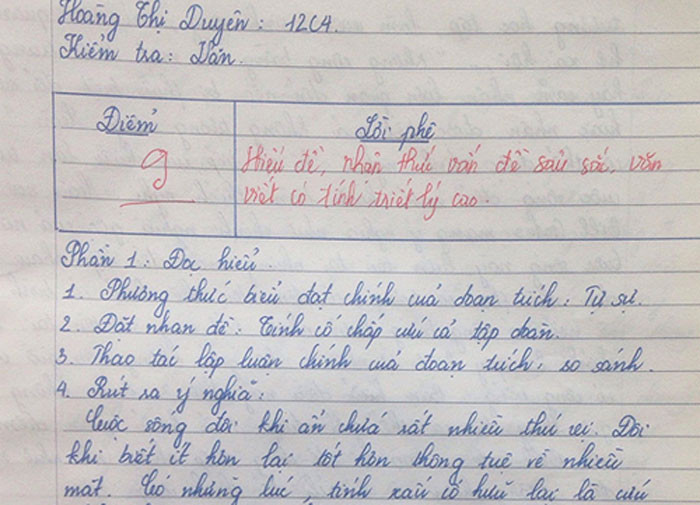 Hoàng Thị Duyên: 12C4.
Kiểm tra: Văn.
Điểm
Lời phê
9
Hiểu đề, nhận thức vấn đề sâu sắc, văn
viết có tính triết lý cao.
Phần 1: Đọc hiểu.
1. Phương thức biểu đạt chính của đoạn trích: Tự sự.
2. Đặt nhan đề: Tính cố chấp cứu cả tập đoàn.
3. Thao tác lập luận chính của đoạn trích: so sánh.
4. Rút ra ý nghĩa:
Cuộc sống đôi khi ẩn chứa rất nhiều thú vị. Đôi
khi biết ít hơn lại tốt hơn thông tuệ về nhiều
mặt. Có những lúc, tính xấu cố hữu lại là cứu